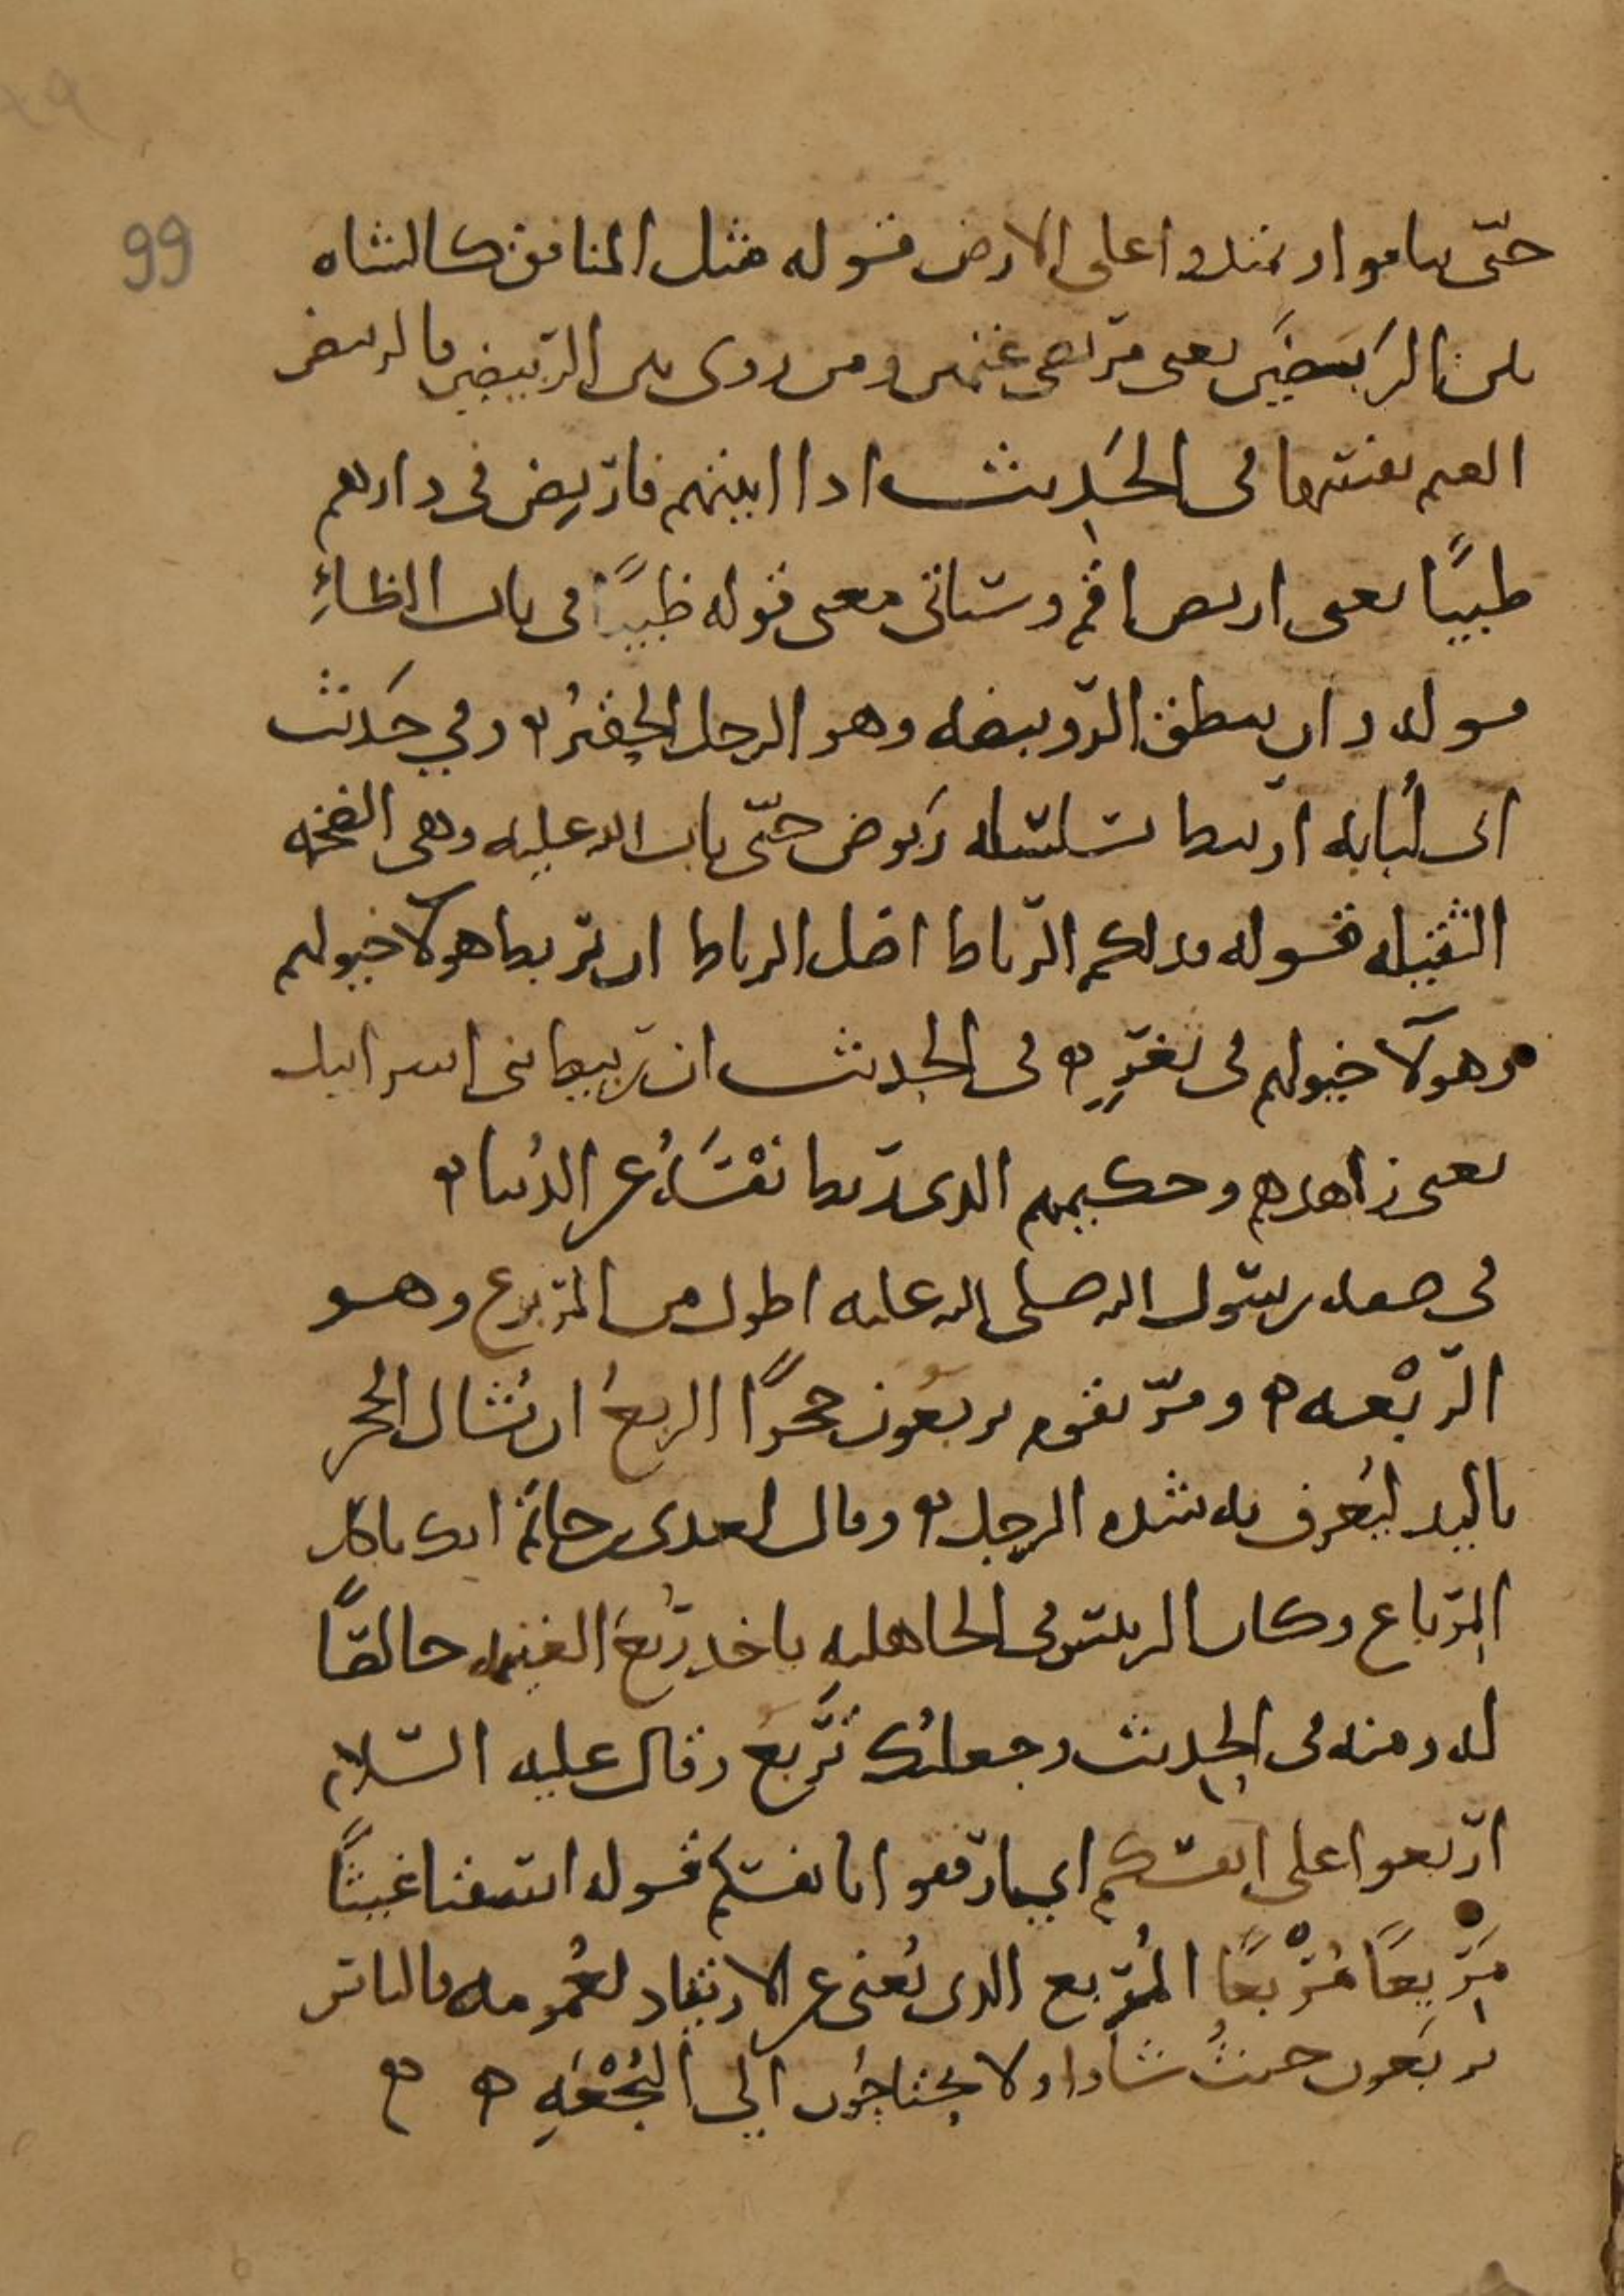 99
حتّى يناموا ويمتدوا على الارض قوله مثل المنافق كالشاه
بين الرَبَضَين يعني مربضي غنمين ومن روى بين الرّبيضين فالربيض
الغنم نفسها في الحَديث اذا اتيتهم فارْبِض في دارهم
ظبيًا يعني اربض اقم وستاتي معنى قوله ظبيًا في باب الظاءِ
قوله وان ينطق الرّويبضه وهو الرجل الحقيرُ ه وفي حَديث
ابي لُبابه ارتبط بسلسله رَبوض حتّى تاب الله عليه وهي الضخمه
الثقيله قوله فذلكم الرّباط اصل الرباط ان يربط هولآ خيولهم
وهولآ خيولهم في ثغرٍ ه في الحديث ان ربيط بني اسرايل
يعني زاهدهم وحكيمهم الذي ربط نفْسَهُ عن الدُنيا ه
في صفه رسول الله صلى الله عليه اطول من المربوع وهو
الرّبْعه ه ومرّ بقوم يربعُون حجرًا الربعُ ان يُشال الحجر
باليد ليُعرف به شده الرجل ه وقال لعدي بن حاتم انك تاكل
المِرباع وكان الرييس في الجاهليه ياخد رُبعَ الغنيمه خالصًا
له ومنه في الحديث وجعلتُك تَرْبَعُ وقال عليه السّلام
ارْبعوا على انفسكم اي ارفقوا بانفسكم قوله اسقنا غيثًا
مَرِيعًا مُرْبعًا المُربع الذي يُغني عن الارتياد لعُمومه فالناس
يربَعون حيثُ شاوا ولا يحتاجُون الي النُجْعَهِ ه ه